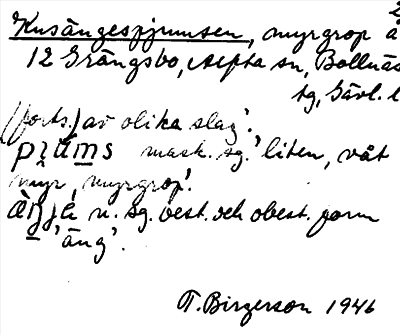 2
Kusängespjrumsen, myrgrop å
12 Grängsbo, Alfta sn, Bollnäs
tg, Gävl. l
(forts.) av olika slag'.
mask. sg. 'liten, våt
myr, myrgrop'.
n. sg. best. och obest. form
'äng'.
T. Birgerson 1946